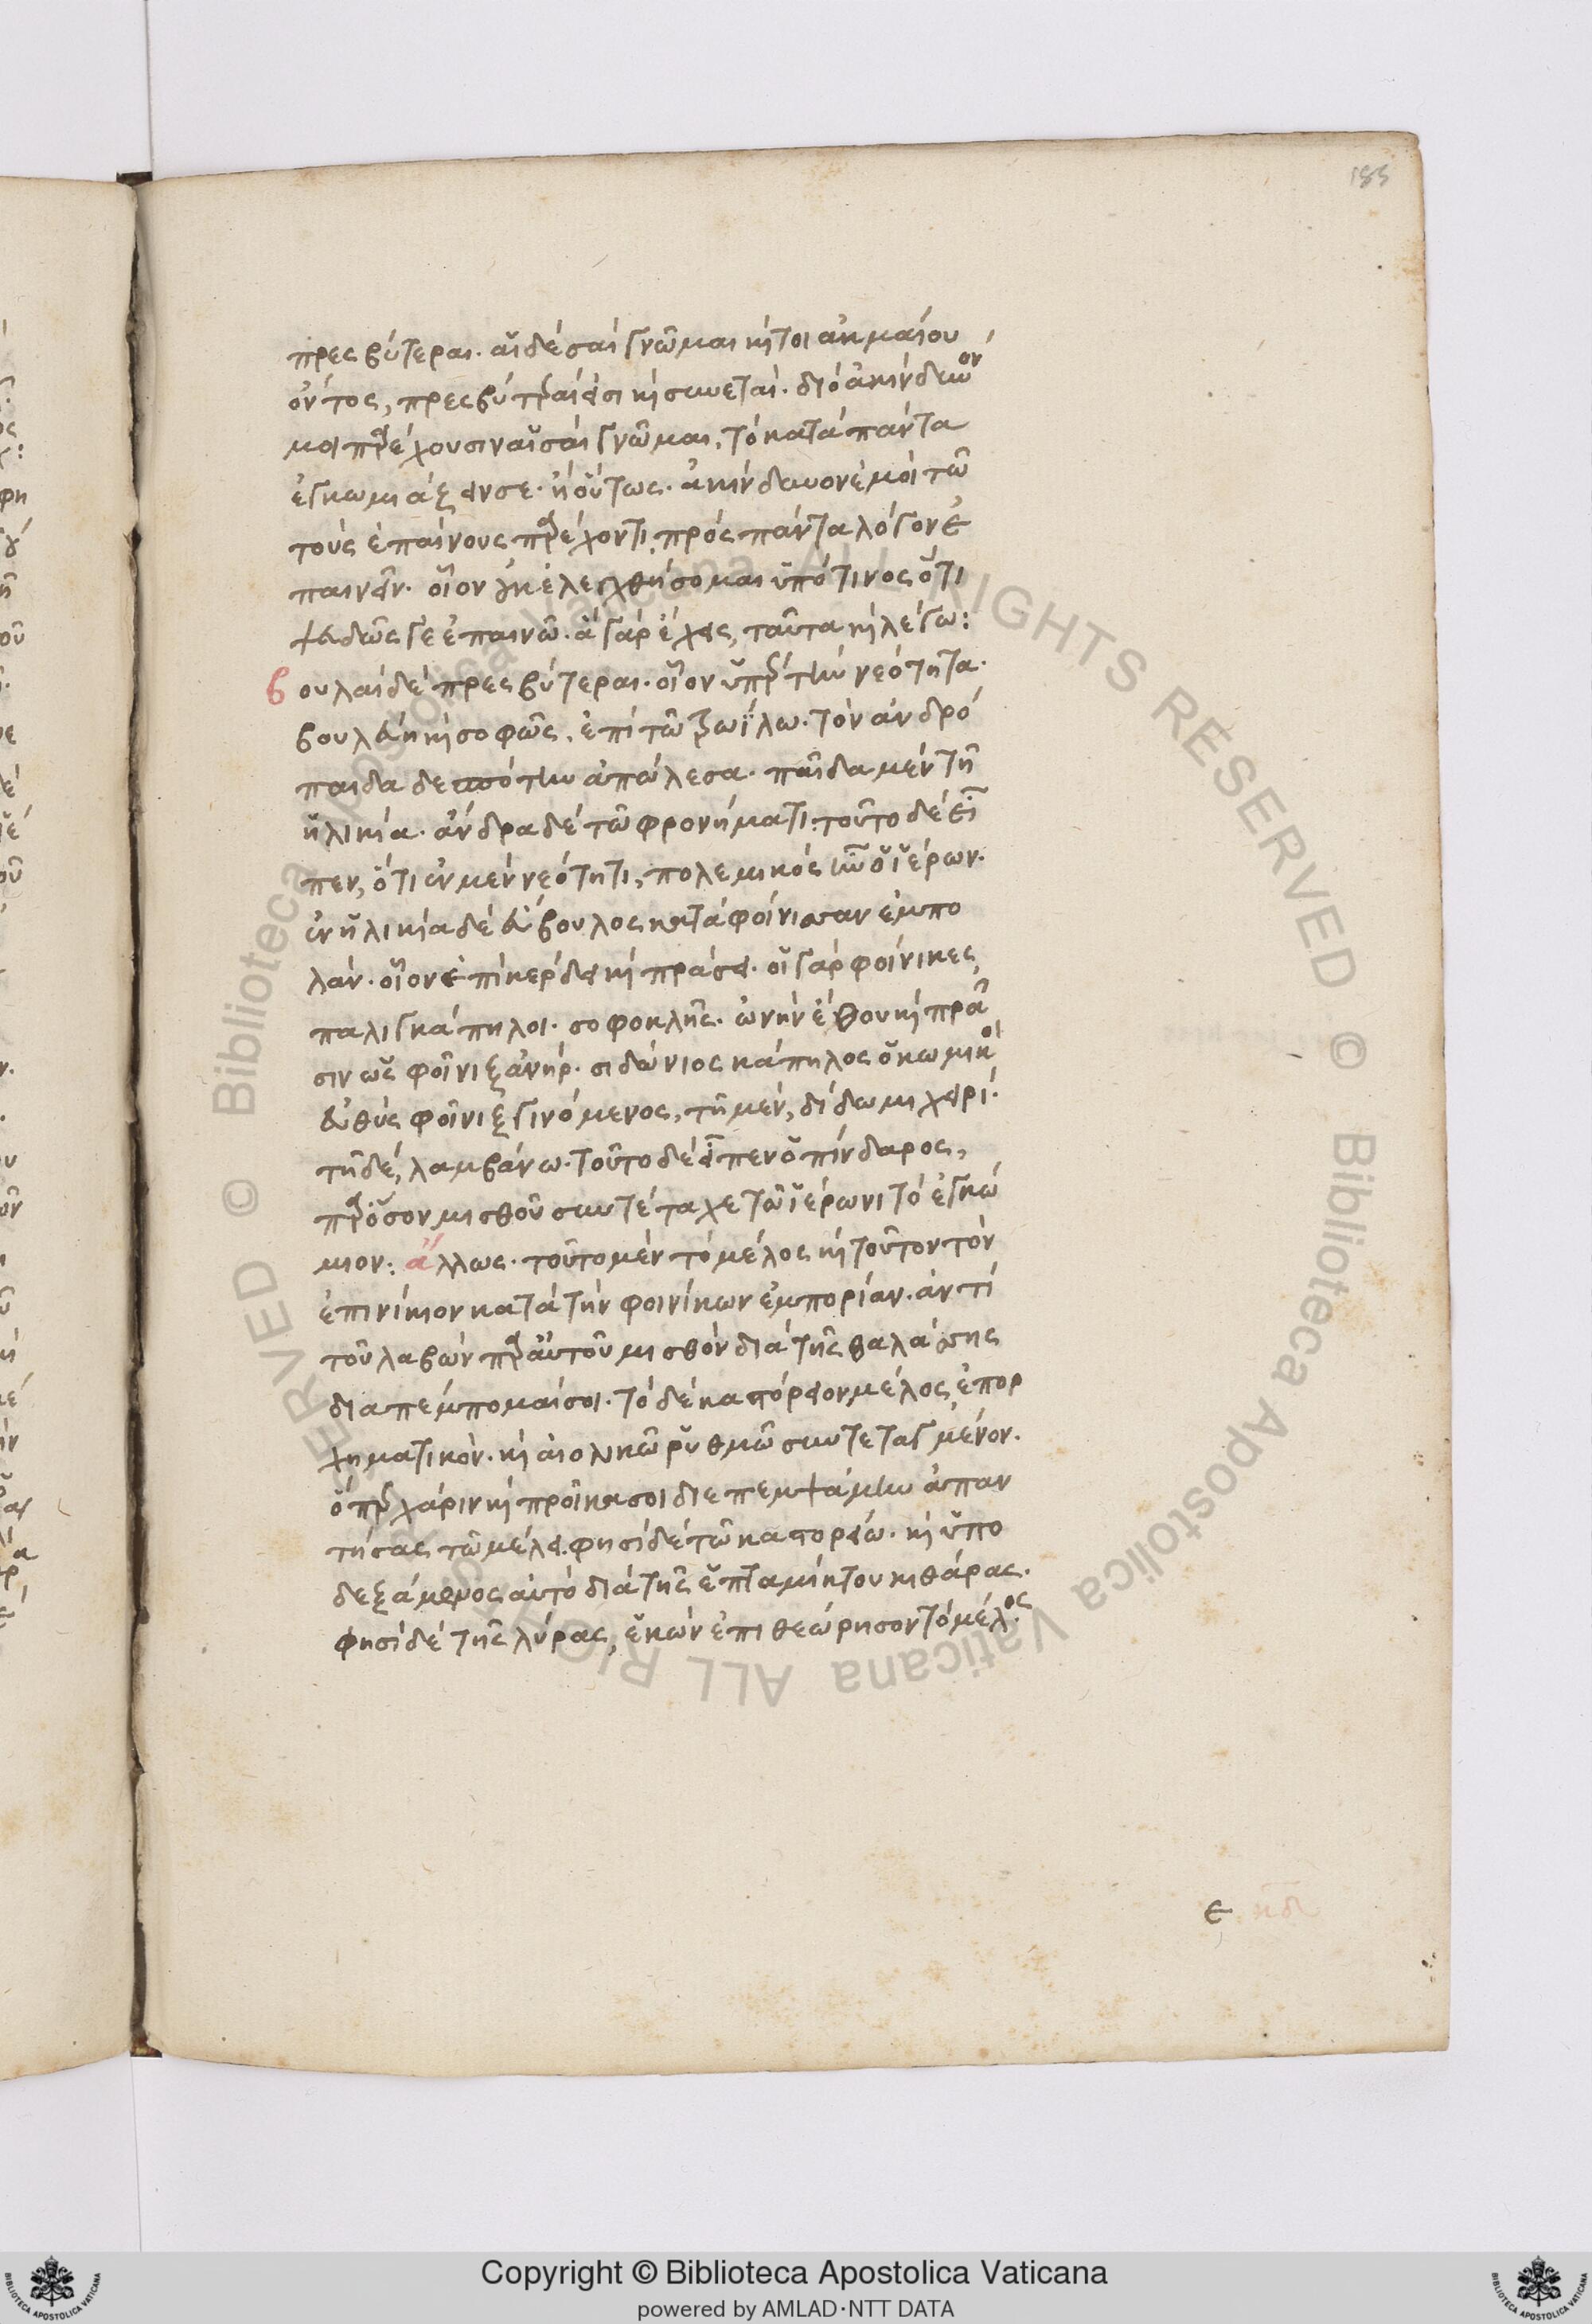 185
πρεσβύτεραι. αἱ δέ σαι γνῶμαι καίτοι ἀκμαίου
ὄντος, πρεσβύτεραί εἰσι καὶ συνεταί. διὸ ἀκίνδυνόν
μοι παρέχουσιν αἱ σαὶ γνῶμαι, τὸ κατὰ πάντα
ἐγκωμιάζειν σε. ἢ οὕτως. ἀκίνδυνον ἐμοὶ τῶ
τοὺς ἐπαίνους παρέχοντι, πρὸς πάντα λόγον ἐ
παινεῖν. οἷον οὐκ ἐλεγχθήσομαι ὑπό τινος ὅτι
ψευδῶς γε ἐπαινῶ. ἃ γὰρ ἔχεις, ταῦτα καὶ λέγω:
βουλαὶ δὲ πρεσβύτεραι. οἷον ὑπὲρ τὴν νεότητα.
βουλεύη καὶ σοφῶς. ἐπὶ τῶ ζωΐλω. τὸν ἀνδρό
παιδα δεσπότην ἀπώλεσα. παῖδα μὲν τῆ
ἡλικία. ἄνδρα δὲ τῶ φρονήματι: τοῦτο δὲ εἶ
πεν, ὅτι ἐν μὲν νεότητι, πολεμικὸς ἦν ὁ ἱέρων.
ἐν ἡλικία δὲ εὔβουλος κατὰ φοίνισσαν ἐμπο
λάν. οἷον ἐπὶ κέρδει καὶ πράσει. οἱ γὰρ φοίνικες,
παλιγκάπηλοι. σοφοκλῆς. ὠνὴν ἔθου καὶ πρᾶ
σιν ὡς φοῖνιξ ἀνήρ. σιδώνιος κάπηλος ὁ κωμικός
εὐθὺς φοῖνιξ γινόμενος, τῆ μὲν, δίδωμι χειρί.
τῆ δὲ, λαμβάνω. τοῦτο δὲ εἶπεν ὁ πίνδαρος,
παρόσον μισθοῦ συντέταχε τῶ ἱέρωνι τὸ ἐγκώ
μιον: ἄλλως. τοῦτο μὲν τὸ μέλος καὶ τοῦτον τὸν
ἐπινίκιον κατὰ τὴν φοινίκων ἐμπορίαν. ἀντὶ
τοῦ λαβὼν παρ' αὐτοῦ μισθὸν διὰ τῆς θαλάσσης
διαπέμπομαί σοι. τὸ δὲ καστόρειον μέλος, ἐπορ
χηματικὸν. καὶ αἰολικῶ ῥυθμῶ συντεταγμένον.
ὅπερ χάριν καὶ προῖκα σοι διεπεμψάμην ἀπαν
τήσας τῶ μέλει φησὶ δὲ τῶ καστορείω. καὶ ὑπο
δεξάμενος αὐτὸ διὰ τῆς ἑπταμίτου κιθάρας.
φησὶ δὲ τῆς λύρας, ἑκὼν ἐπιθεώρησον τὸ μέλος
ε κδ
Copyright © Biblioteca Apostolica Vaticana
powered by AMLAD·NTT DATA